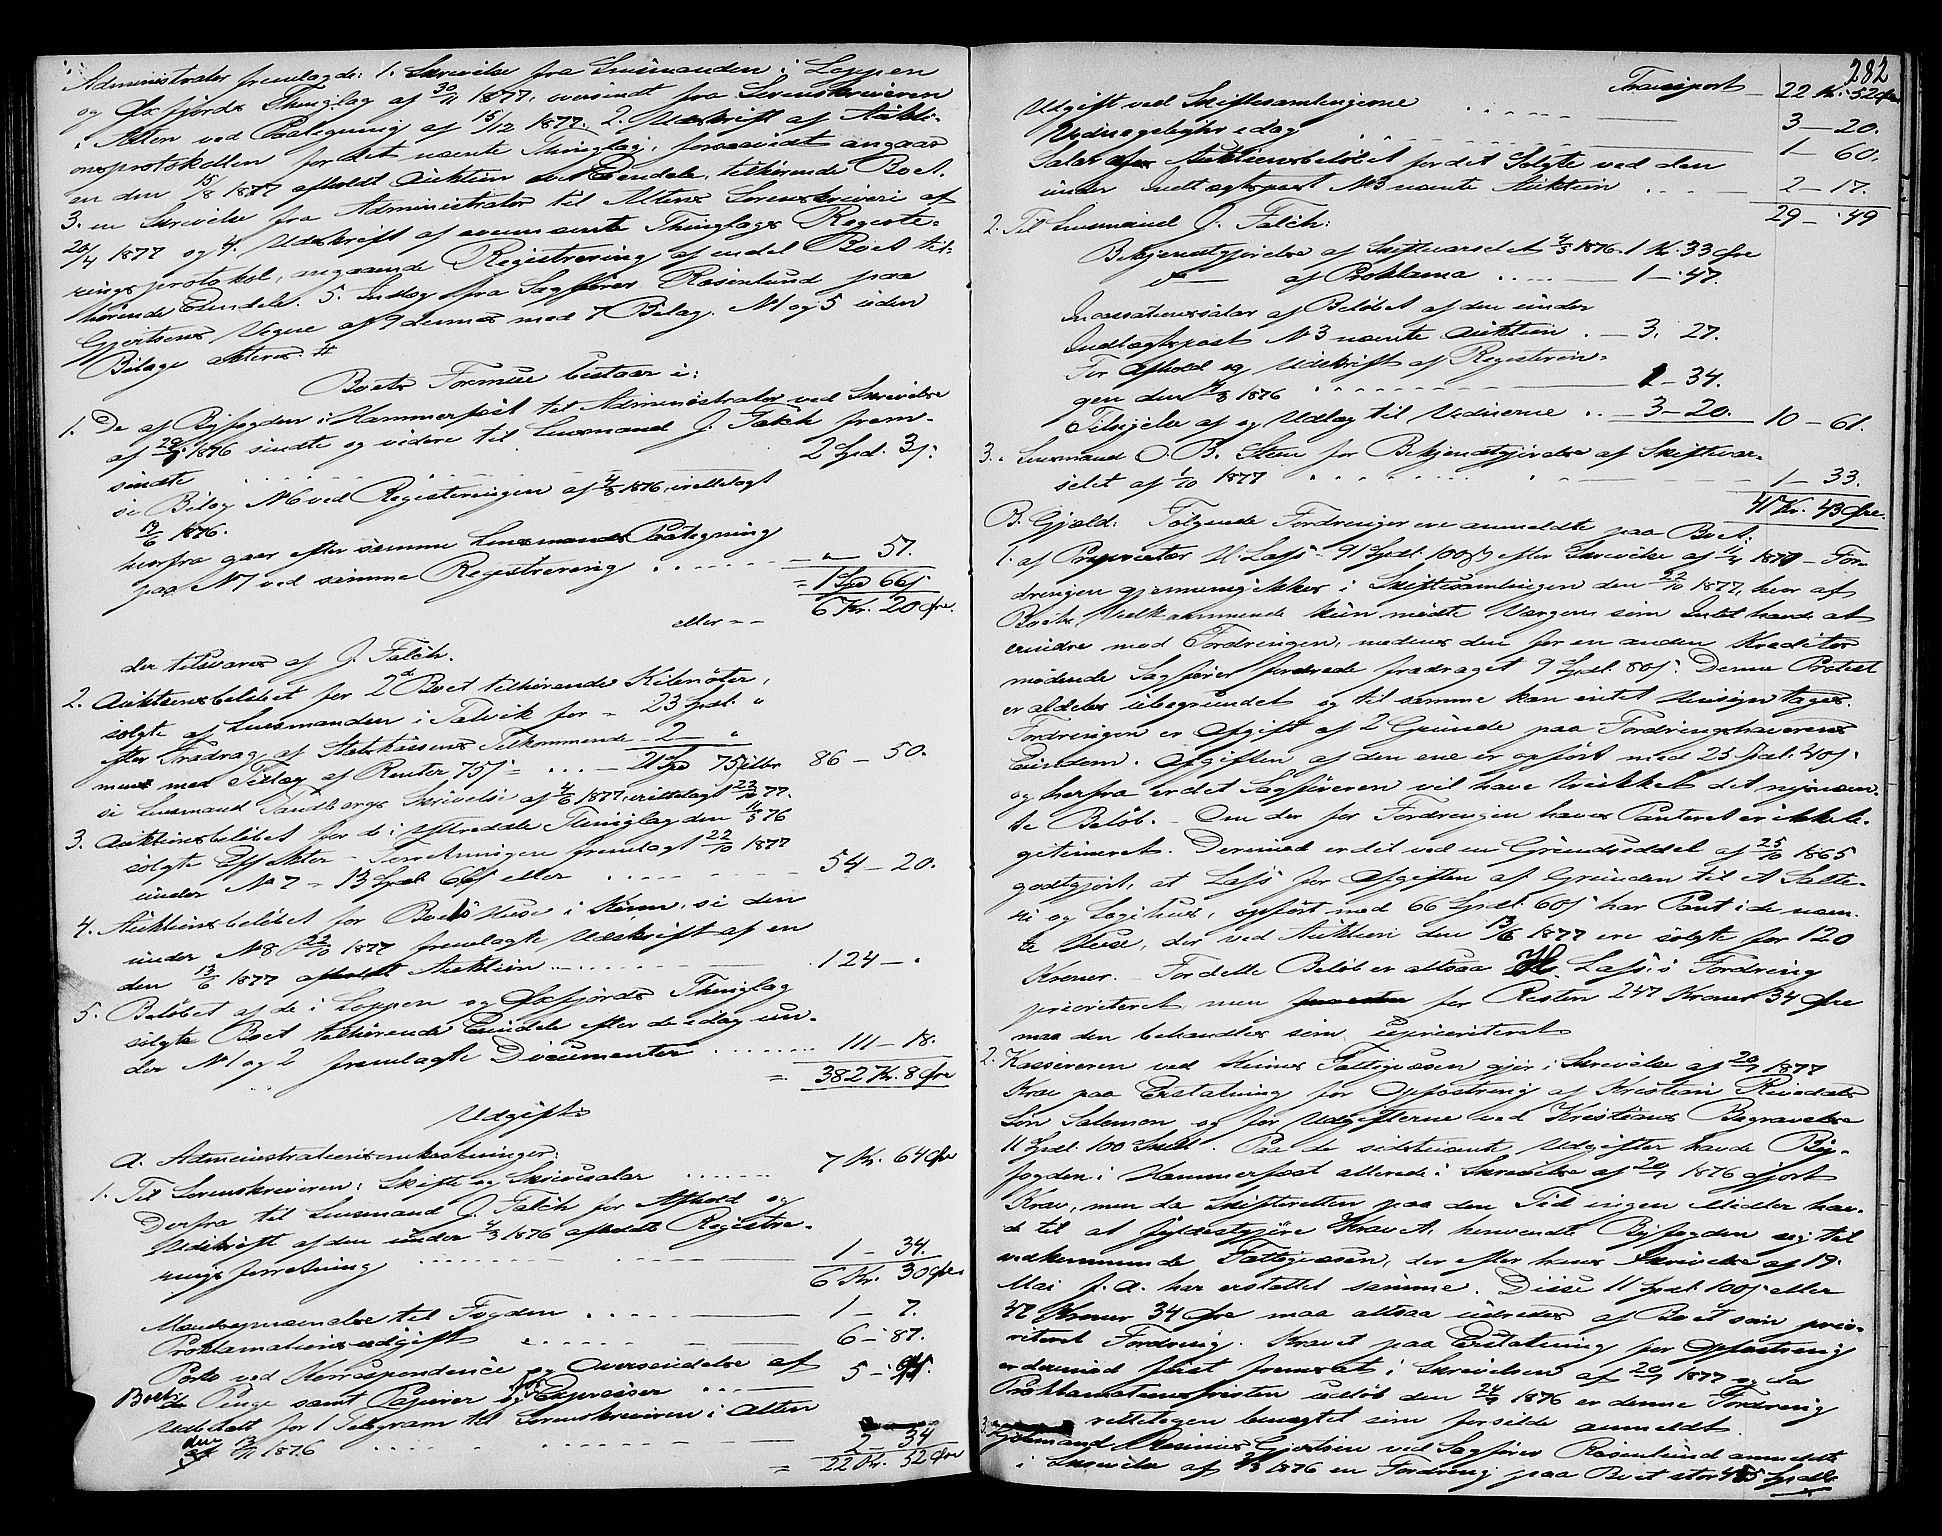 Administrator fremlagde: 1. Skrivelse fra Lensmanden i Loppen
og Øxfjords Thinglag af 30/11 1877, oversendt fra Sorenskriveren
i Alten ved Paategning af 15/12 1877. 2. Udskrift af Aukti-
onsprotokollen for det nævnte Thinglag, forsaavidt angaar
en den 15/8 1877 afholdt Auktion over Eiendele, tilhørende Boet.
3. en Skrivelse fra Administrator til Altens Sorenskriveri af
26/4 1877 og 4. Udskrift af ovennævnte Thinglags Registe-
ringsprotokol, angaaende Registrering af endel Boet til-
hørende Eiendele. 5. Indlæg fra Sagfører Rosenlund paa
Gjertsens Vegne af 9 dennes med 7 Bilag. N 1 og 5 uden
Bilage akteres. #
Boets Formue bestaar i:
1. De af Byfogden i Hammerfest til Administrator ved Skrivelse
af 1876 sendte og videre til Lensmand J. Falch frem-
sendte . . . 2 Spd. 3 s.
se Bilag N 6 ved Registeringen af 4/3 1876, irettelagt
13/6 1876.
herfra gaar efter samme Lensmands Paategning
paa N 7 ved samme Registrering . . . . . . „ — 57.
= 1 Spd 66 s
eller - - 6 Kr. 20 Øre.
der tilsvares af J. Falch.
2. Auktionsbeløbet for 2 Boet tilhørende Kilenøter,
solgte af Lensmanden i Talvik for = 23 Spd. „
efter Fradrag af Statskassens Tilkommende - 2 — „
men med Tillæg af Renter 75 s = . . . — 21 Spd 75 s eller 86 — 50.
se Lensmand Tandbergs Skrivelse af 4/6 1877, irettelagt 22/10 77.
3. Auktionsbeløbet for de i Yttredals Thinglag den 76
solgte Effekter - Forretningen fremlagt 22/10 1877
under N 7 = 13 Spd. 66 s eller . . . 54 — 20.
4. Auktionsbeløbet for Boets Huse i , se den
under N 8 22/10 1877 fremlagte Udskrift af en
den 13/6 1877 afholdt Auktion . . . 124 — .
5. Beløbet af de i Loppen og Øxfjords Thinglag
solgte Boet tilhørende Eiendele efter de idag un-
der N 1 og 2 fremlagte Documenter . . . . . . . . 111 — 18.
= 382 Kr. 8 Øre
Udgift:
A. Administrationsomkostninger:
1. Til Sorenskriveren: Skifte og Skriversalær . . . . . . 7 Kr. 64 Øre
Derfra til Lensmand J. Falch for Afhold og
Udskrift af den under 4/3 1876 afholdte Registre-
ringsforretning . . . 1 — 34.
6 Kr. 30 Øre
til Fogden . . . . . — 1 — 7.
Proklamationsudgift . . . . . . 6 — 87.
Porto ved Korrespondence og Oversendelse af
Boets Penge samt Papirer og Expresser . . . — 5 —
Udbetalt for 1 Telegram til Sorenskriveren i Alten
den 1876 . . . 2 — 34
= 22 Kr. 52 Øre
282
Transport — 22 Kr. 52 Øre
Udgift ved Skiftesamlingerne . . . . — 3 — 20.
Vidnegebyhr idag . . . 1 — 60.
Salær af Auktionsbeløbet for det Solgte ved den
under Indtægtspost N 3 nævnte Auktion . . . . — 2 — 17.
29 — 49
2. Til Lensmand J. Falch:
Bekjendtgjørelse af Skiftevarselet 4/3 1876. 1 Kr. 33 Øre
do — af Proklama . . . . . — 1 — 47.
Incassationssalær af Beløbet af den under
Indtægtspost N 3 nævnte Auktion . — 3. 27.
For Afhold og Udskrift af Registerin-
gen den 4/3 1876 . . . — 1 — 34.
Tilsigelse af og Udlæg til Vidnerne . . — 3 — 20. 10 — 61.
3. Lensmand O. B. Steen for Bekjendtgjørelse af Skiftevar-
selet af 1/10 1877 . . . 1 — 33.
41 Kr. 43 Øre.
B. Gjæld: Følgende Fordringer ere anmeldte paa Boet:
1. af Proprietær Lassₒ - 91 Spd. 100 s efter Skrivelse af 1877 - For-
dringen gjennemgikkes i Skiftesamlingen den 22/10 1877, hvor af
Boets Vedkommende kun mødte Værgen som Intet havde at
erindre mod Fordringen, medens den for en anden Kreditor
mødende Sagfører fordrede fradraget 9 Spd. 80 s. Denne Protest
er aldeles ubegrundet og til samme kan intet Hensyn tages.
Fordringen er Afgift af 2 Grunde paa Fordringshaverens
Eiendom. Afgiften af den ene er opført med 25 Spd. 40 s.
og herfra er det Sagføreren vil have trukket det nysnævn-
te Beløb. - Om der for Fordringen haves Panteret er ikke le-
gitimeret. Derimod er det ved en Grundseddel af 25/10 1865
godtgjort, at Lass for Afgiften af Grunden til et Salte-
ri og Logihus, opført med 66 Spd. 60 s har Pant i de nævn-
te Huse, der ved Auktion den 13/6 1877 ere solgte for 120
Kroner. - For dette Beløb er altsaa Lass's Fordring
prioriteret men for Resten 247 Kroner 34 Øre
maa den behandles som uprioriteret
2. Kassereren ved Fattigvæsen gjør i Skrivelse af 20/7 1877
Krav paa Erstatning for Opfostring af Kristian
Søn Salomon og for Udgifterne ved Kristians Begravelse
11 Spd. 100 Skill. Paa de sidstnævnte Udgifter havde By-
fogden i Hammerfest allerede i Skrivelse af 20/7 1876 gjort
Krav, men da Skifteretten paa den Tid ingen Midler hav-
de til at fyldestgjøre Kravet, henvendte Byfogden sig til
vedkommende Fattigvæsen, der efter hans Skrivelse af 19.
Mai f. A. har erstattet samme. Disse 11 Spd. 100 s eller
47 Kroner 34 Øre maa altsaa udredes af Boet som prio-
riteret Fordring. Kravet paa Erstatning for Opfostring
er derimod først fremsat i Skrivelsen af 20/7 1877 og da
Proklamationsfristen udløb den 24/9 1876 er denne Fordring
rettelegen benegtet som forsilde anmeldt.
3. Gjertsen ved Sagfører Rosenlund anmeldte
i Skrivelse af 1876 en Fordring paa Boet stor 45 Spdlr